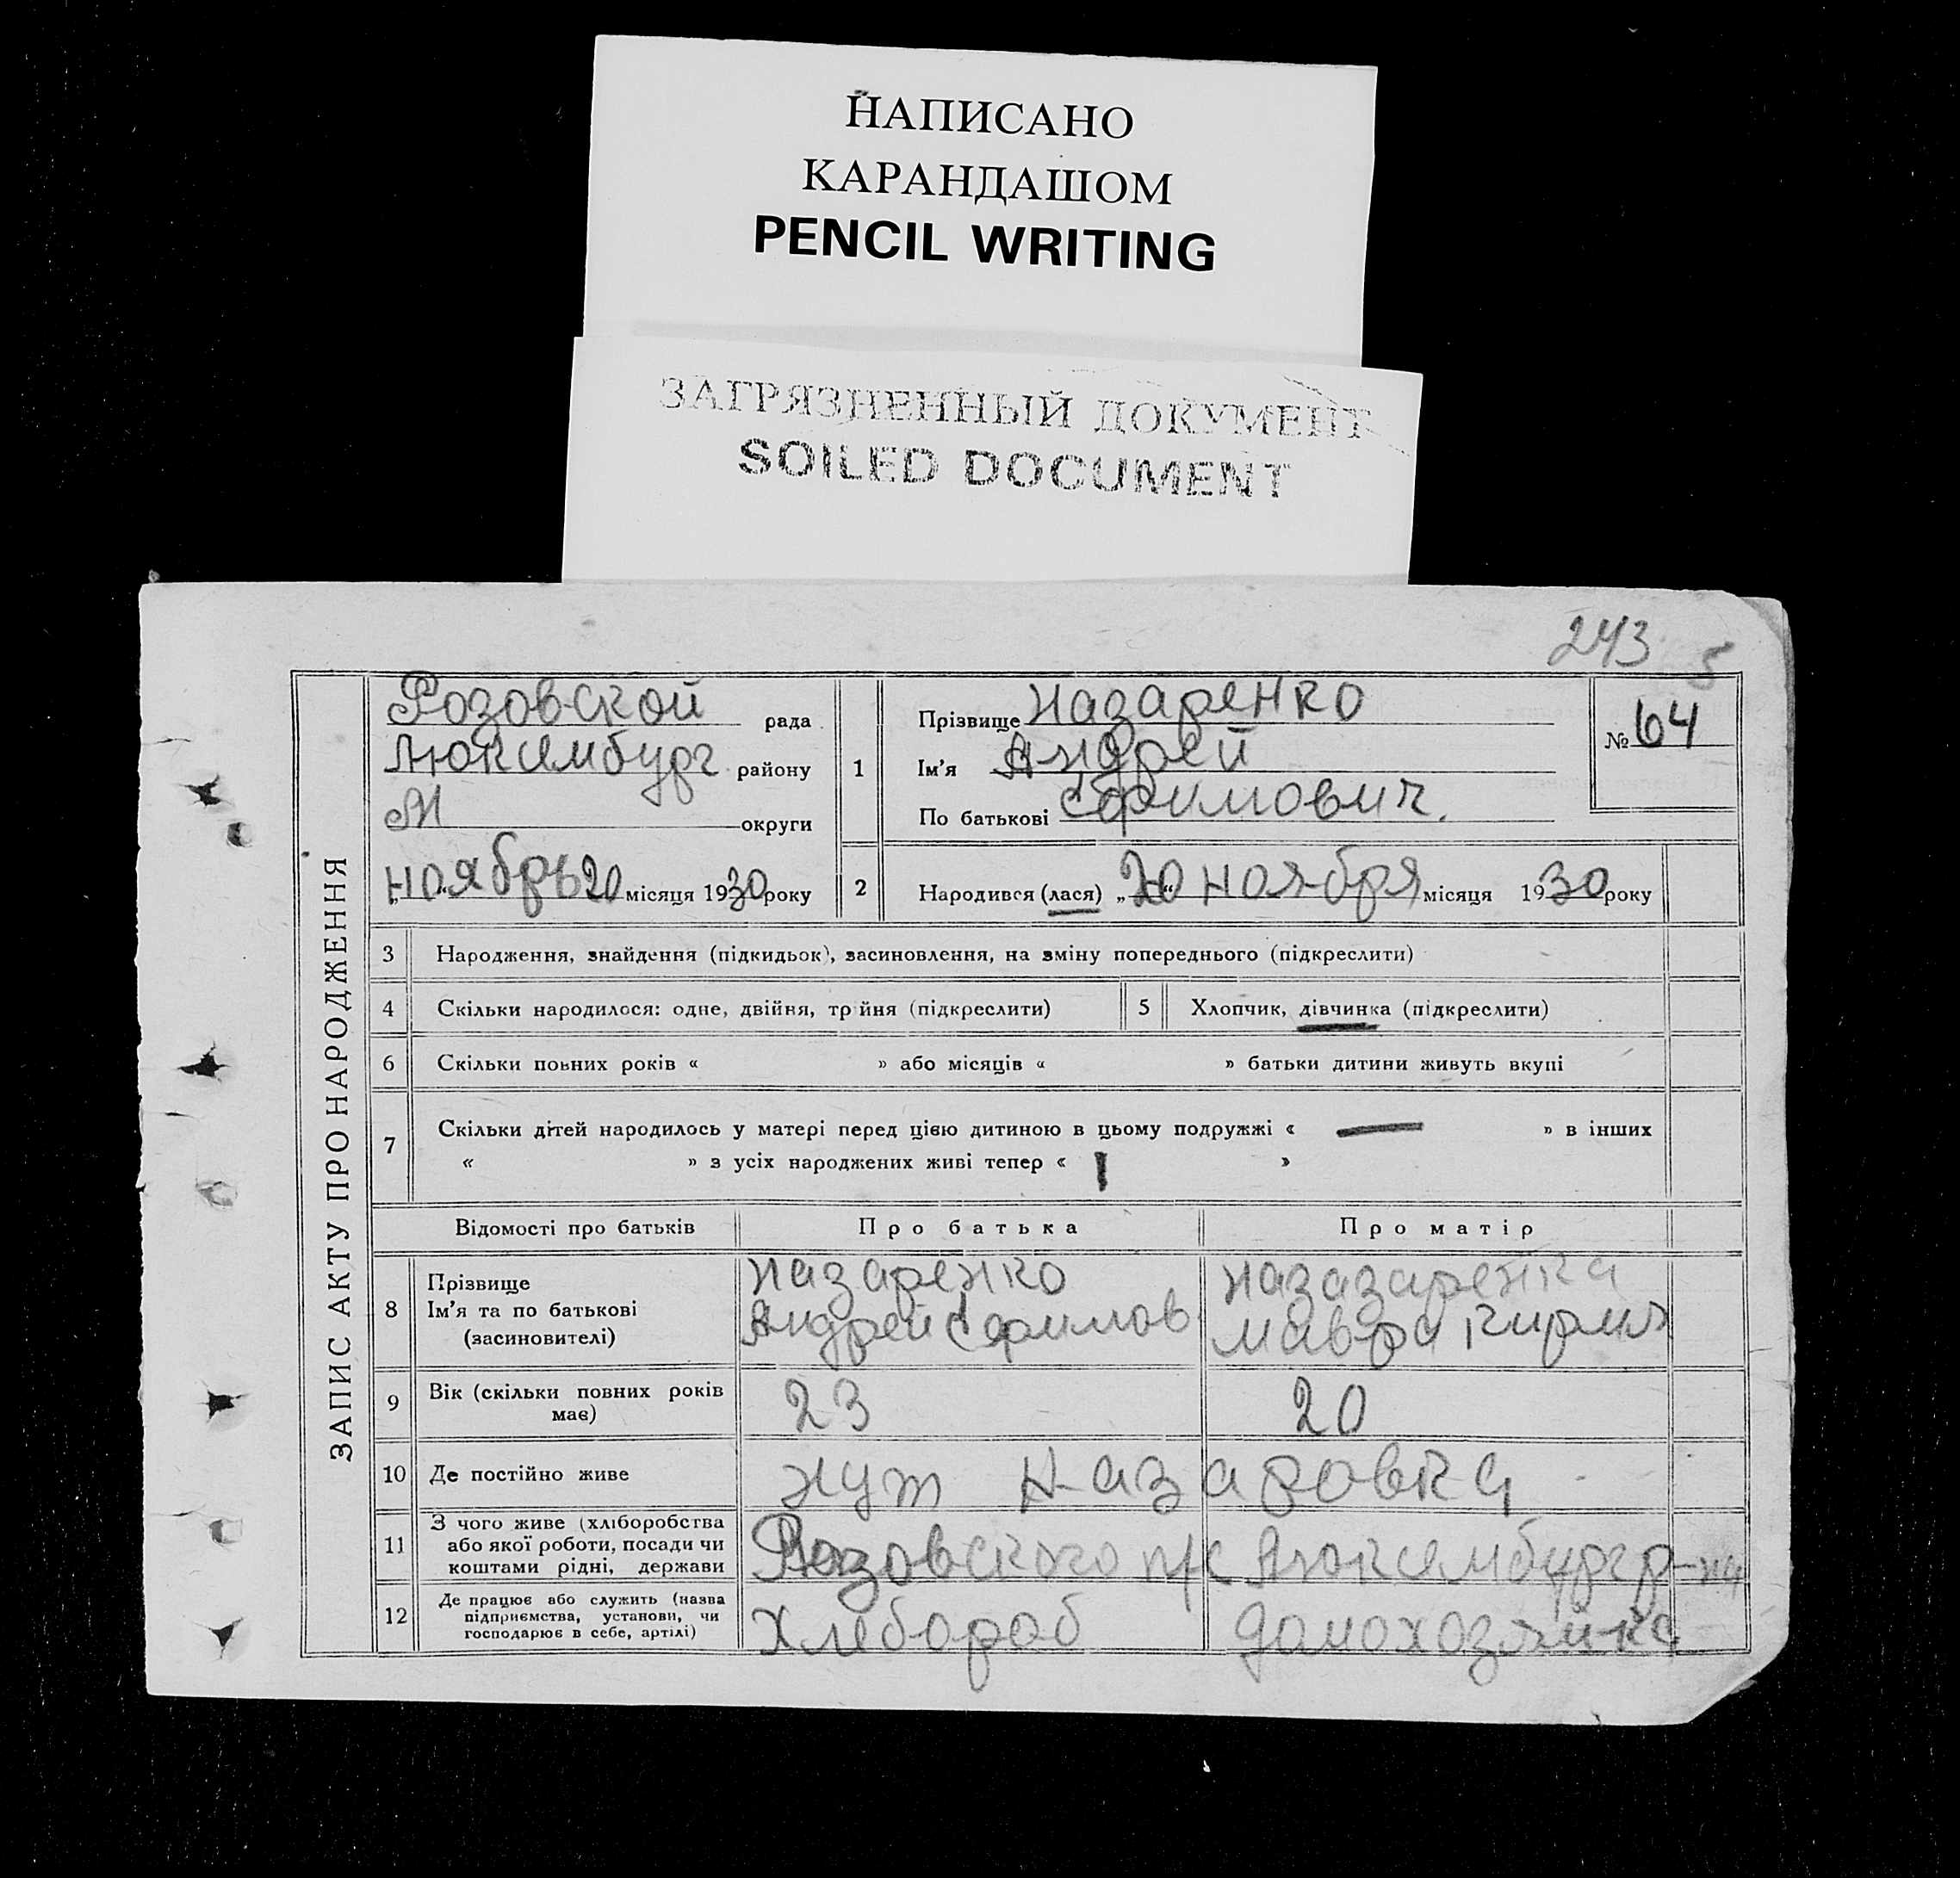 НАПИСАНО
КАРАНДАШОМ
PENCIL WRITING
ЗАГРЯЗНЕННЫЙ ДОКУМЕНТ
SOILED DOCUMENT
243 5
ЗАПИС АКТУ ПРО НАРОДЖЕННЯ
Розовской рада
Люксембург району
М округи
ноябрь 20 місяця 1930 року
1
Прізвище Назаренко
Ім'я Андрей
По батькові Ефимович.
№ 64
2 Народився (лася) „20“ ноября місяця 1930 року
3 Народження, знайдення (підкидьок), засиновлення, на зміну попереднього (підкреслити)
4 Скільки народилося: одне, двійня, трійня (підкреслити)
5 Хлопчик, дівчинка (підкреслити)
6 Скільки повних років « » або місяців « » батьки дитини живуть вкупі
7 Скільки дітей народилось у матері перед цією дитиною в цьому подружжі « — » в інших
« » з усіх народжених живі тепер « 1 »
Відомості про батьків Про батька Про матір
8
Прізвище
Ім'я та по батькові
(засиновителі)
Назаренко
Андрей Ефимов
Назазаренка
Мавра Кирил
9 Вік (скільки повних років
має)
23 20
10 Де постійно живе хут Назаровка
11
З чого живе (хліборобства
або якої роботи, посади чи
коштами рідні, держави
Розовского п/с Люксембург р-на
12
Де працює або служить (назва
підприємства, установи, чи
господарює в себе, артілі)
Хлебороб домохозяйка